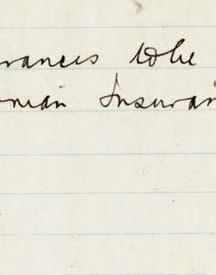 rances to be
nian Insuran